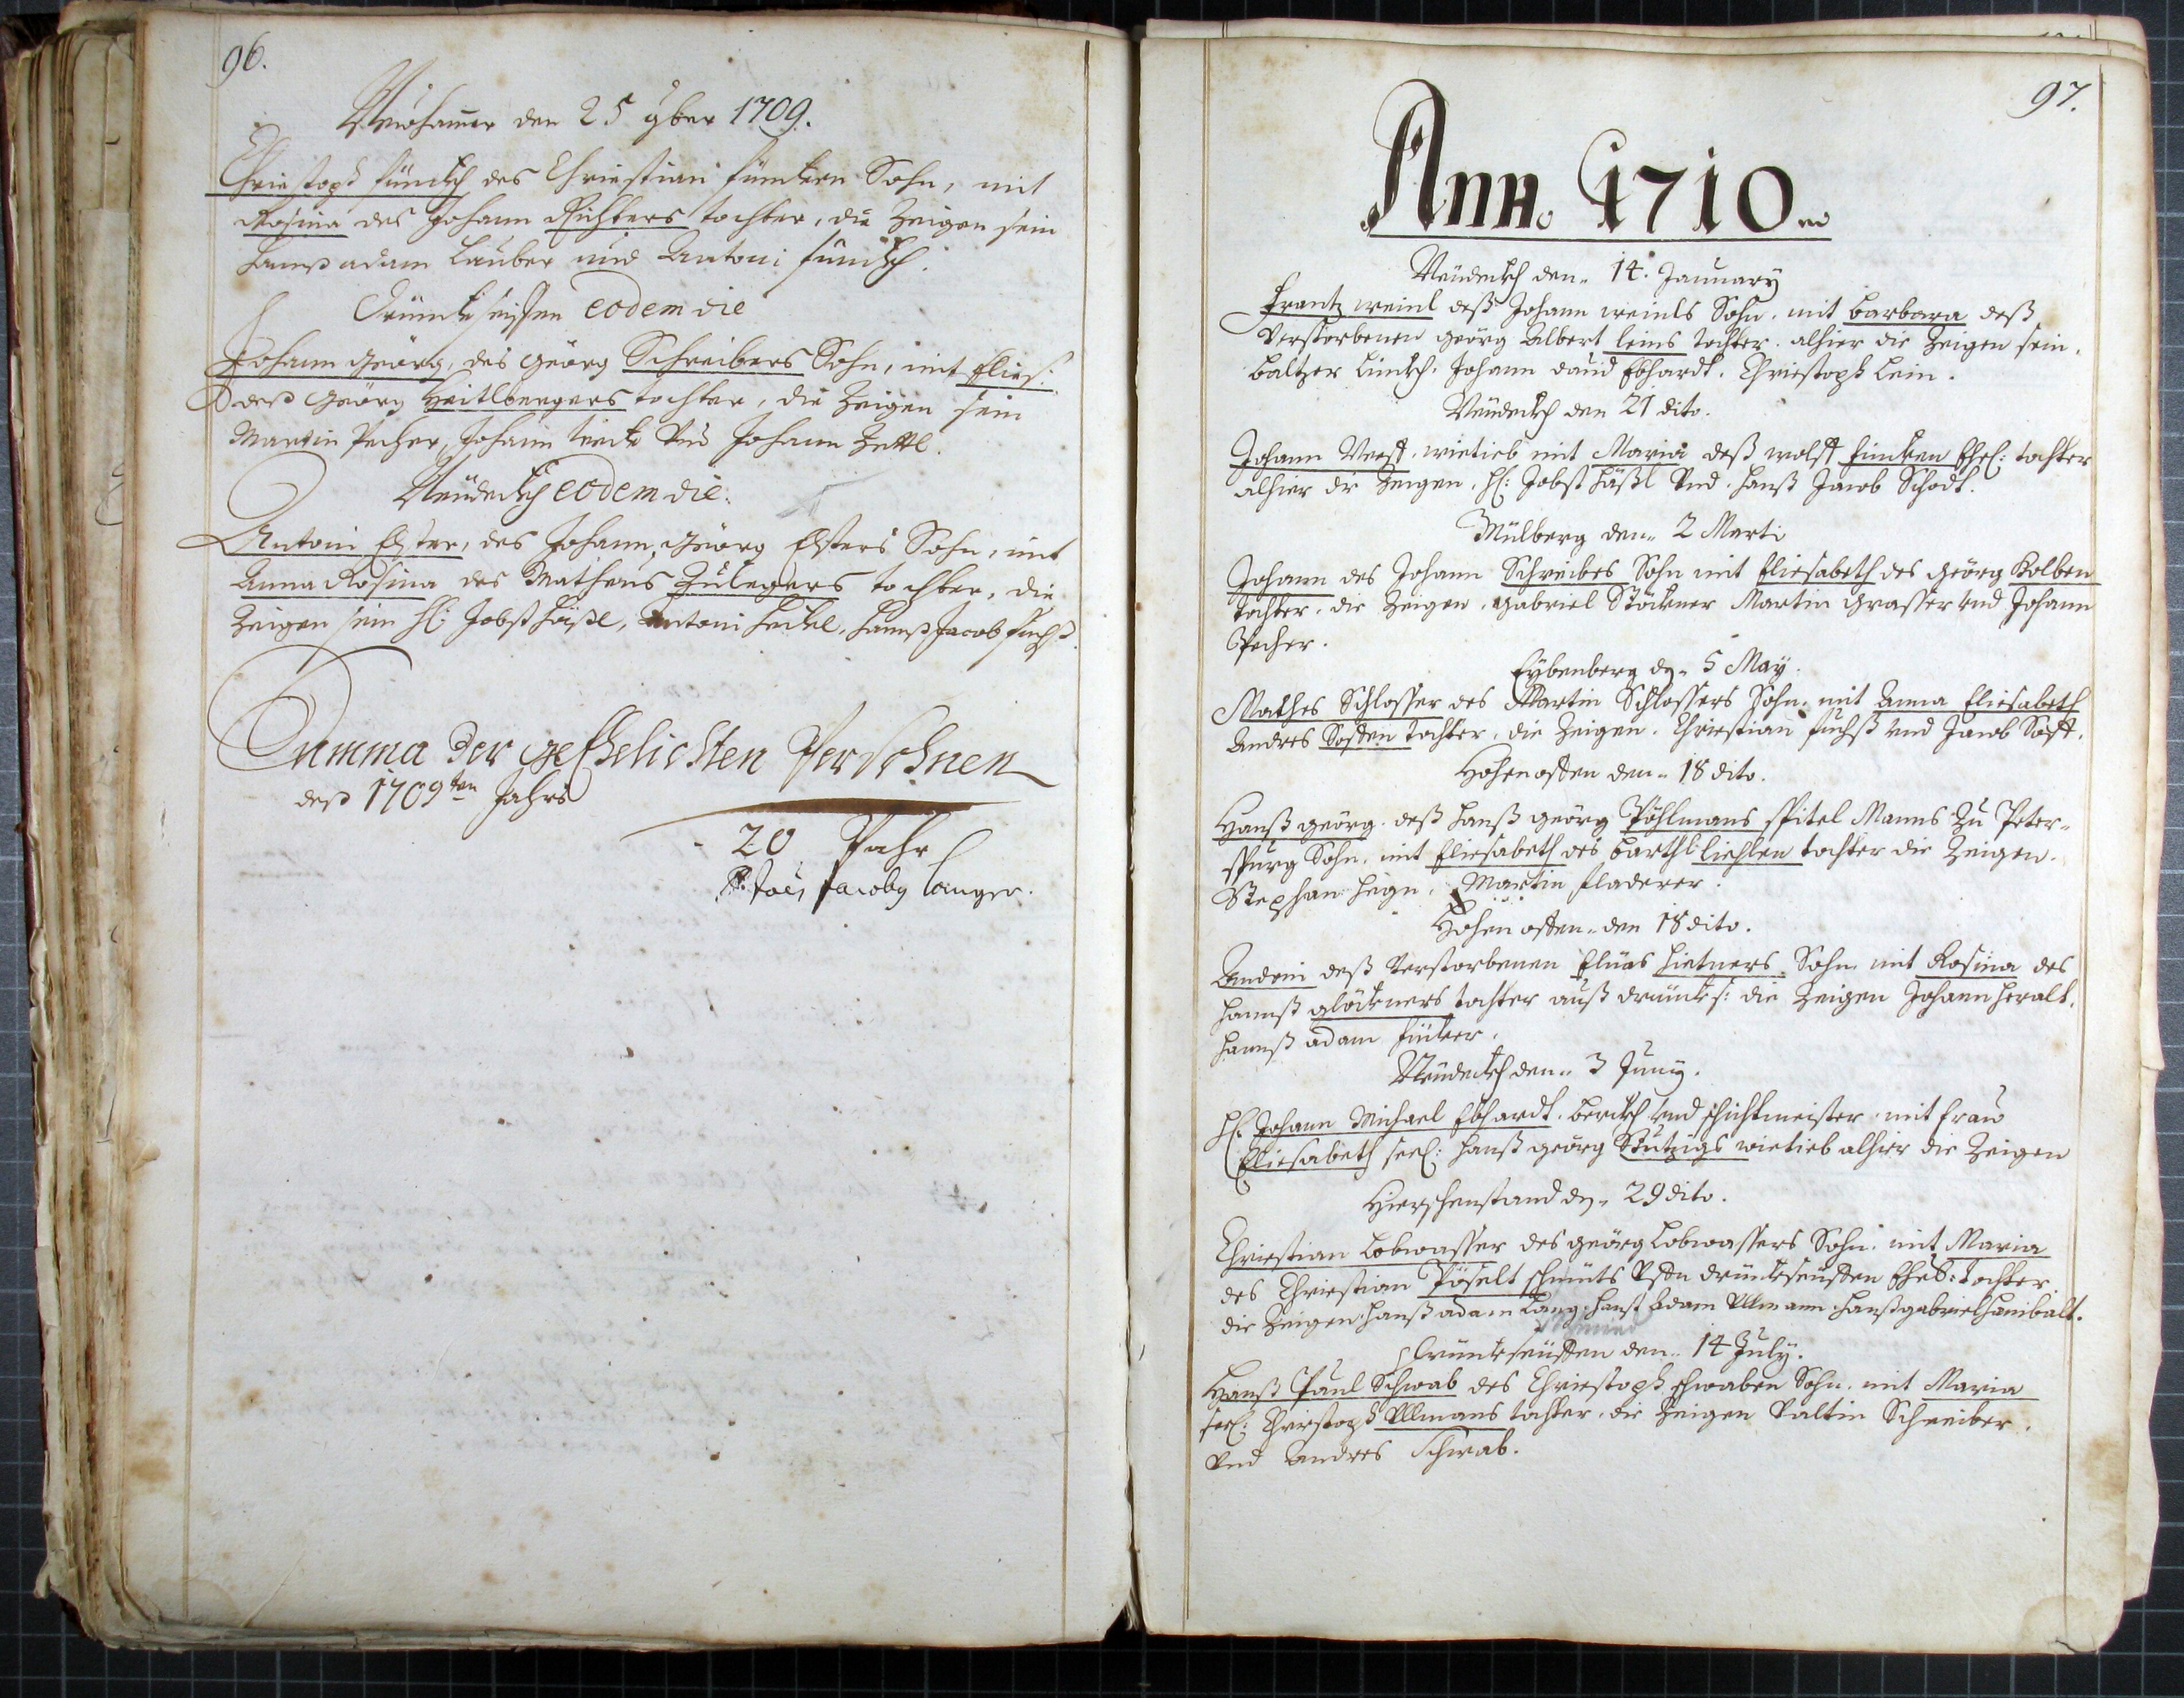 96.
Neühamer den 25 9ber 1709.
Christoph fünckh des Christian füncken Sohn, mit
Rosina des Johann Richters tochter, die Zeigen sein
Hanß adam Lauber und Antoni fünckh.
Drünckseiffen eodem die
Johann Geörg, des Geörg Schreibers Sohn, mit Elies:
deß Geörg Heitlbergers tochter, die Zeigen sein
Martin Pecher, Johann Vnd Johann Zettl.
Neüdeckh eodem die.
Antoni Elster, des Johann Geörg Elsters Sohn, mit
Anna Rosina des Matheus Zülegers tochter, die
Zeigen sein H: Jobst Häßl, Antoni Heckel, Hanß Jacob fuchß.
Summa der geEhelichten Persohnen
deß 1709ten Jahrs
20 Pahr
Jacoby Langer.
97.
Anno 1710.
Neüdeckh den 14. January
Frantz weinl deß Johann weinls Sohn, mit Barbara deß
Verstorbenen Geörg Albert leins tochter alhier die Zeigen sein.
Baltzer Linckh. Johann david Ebhardt. Christoph Lein.
Neüdeckh den 21 dito.
Johann wietieb mit Maria deß wolff fincken Ehel: tochter
alhier die Zeigen, H: Jobst Häßl Vnd Hanß Jacob Schodt.
Mülberg den 2 Marti
Johann des Johann Schreibes Sohn mit Eliesabeth des Geörg Kolben
tochter, die Zeigen, Gabriel Stöckner Martin Grasser Vnd Johann
Pecher.
Eybenberg dn 5 May.
Mathes Schlosser des Martin Schlossers Sohn mit Anna Eliesabeth
Andres tochter, die Zeigen. Christian fuchß Vnd Jacob
Hohenofen den 18 dito.
Hanß Geörg deß Hanß Geörg Pöhlmans spitel Manns Zu Peter-
spurg Sohn, mit Eliesabeth des Barthl liehlen tochter die Zeigen.
Stephan Martin fladerer.
Hohenofen den 18 dito.
Andreii deß Verstorbenen Elias Hietners Sohn mit Rosina des
Hannß glöckners tochter auß drüncks: die Zeigen Johann Heralt.
Hannß adam fincker.
Neüdeckh den 3 Juny.
H: Johann Michael Ebhardt. Berckh Vnd schichtmeister mit frau
Eliesabeth seel: Hanß Geörg Stützigs wietieb alhier die Zeigen
Hierschenstand dn 29 dito.
Christian Lobwasser des Geörg Lobwassers Sohn mit Maria
des Christian Pöselt schmits Vffn drünckseüffen Ehel: tochter.
die Zeigen Hanß adam Lang. Hanß Adam Ullmann. Hanß gabriel Hanibalt.
Schmied
Drünckseüffen den 14 July.
Hanß Paul Schwab des Christoph schwaben Sohn, mit Maria
seel: Christoph Ullmans tochter, die Zeigen Valtin Schreiber.
Vnd Andres Schwab.